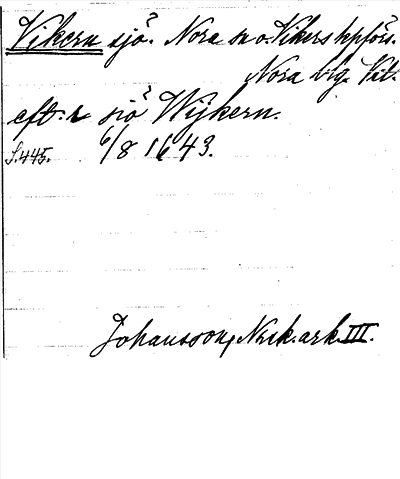 Vikern sjö. Nora sn o. Vikers kpförs.
Nora bg.
eft. r sjö Wijkern.
S. 445. 6/8 1643.
Johansson, Nork. ark. III.